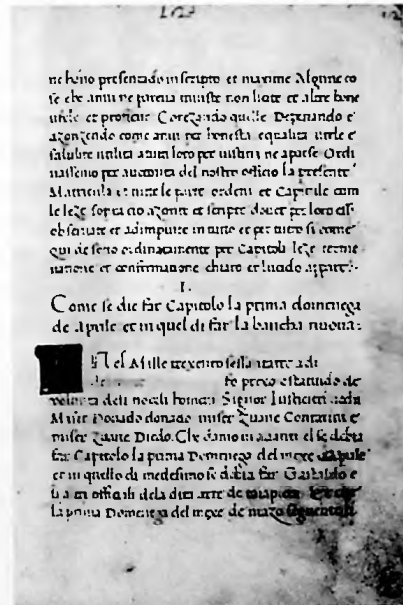 ne hāno presentado in scripto et maxime Algune co
se che anui ne pareua iniuste non licite et altre bone
utile et proficue Corezando quelle Detrazando e
azonzendo come anui per honesta equalita utile e
salubre utilita a tuti loro per iustitia ne aparse Ordi
nassemo per auctorita del nostro officio la presente
Matricula et tute le parte ordeni et Capitule cum
le leze sopra cio azonte et sempre douer per loro essr
obseruate et adimpiute in tuto et per tuto si come
qui de soto ordinatamente per Capituli leze termi
natione et confirmatione chiaro et lucido appare
I
Come se die far Capitolo la prima domenega
de aprile et in quel di far la bancha nuoua
Nel Mille trexento sessanta adi
fo prexo et statuido de
uolunta deli nobeli homeni Signor Iusticieri
Miser Donado donado miser Zuane Contarini e
miser Zuane Diedo. Che damo in auanti el se debia
far Capitolo la prima Domenega del mexe de aprile
et in quello di medesimo se debia far Gastaldo e
li altri officiali dela dita arte de
la prima Domenega del mexe de mazo seguente